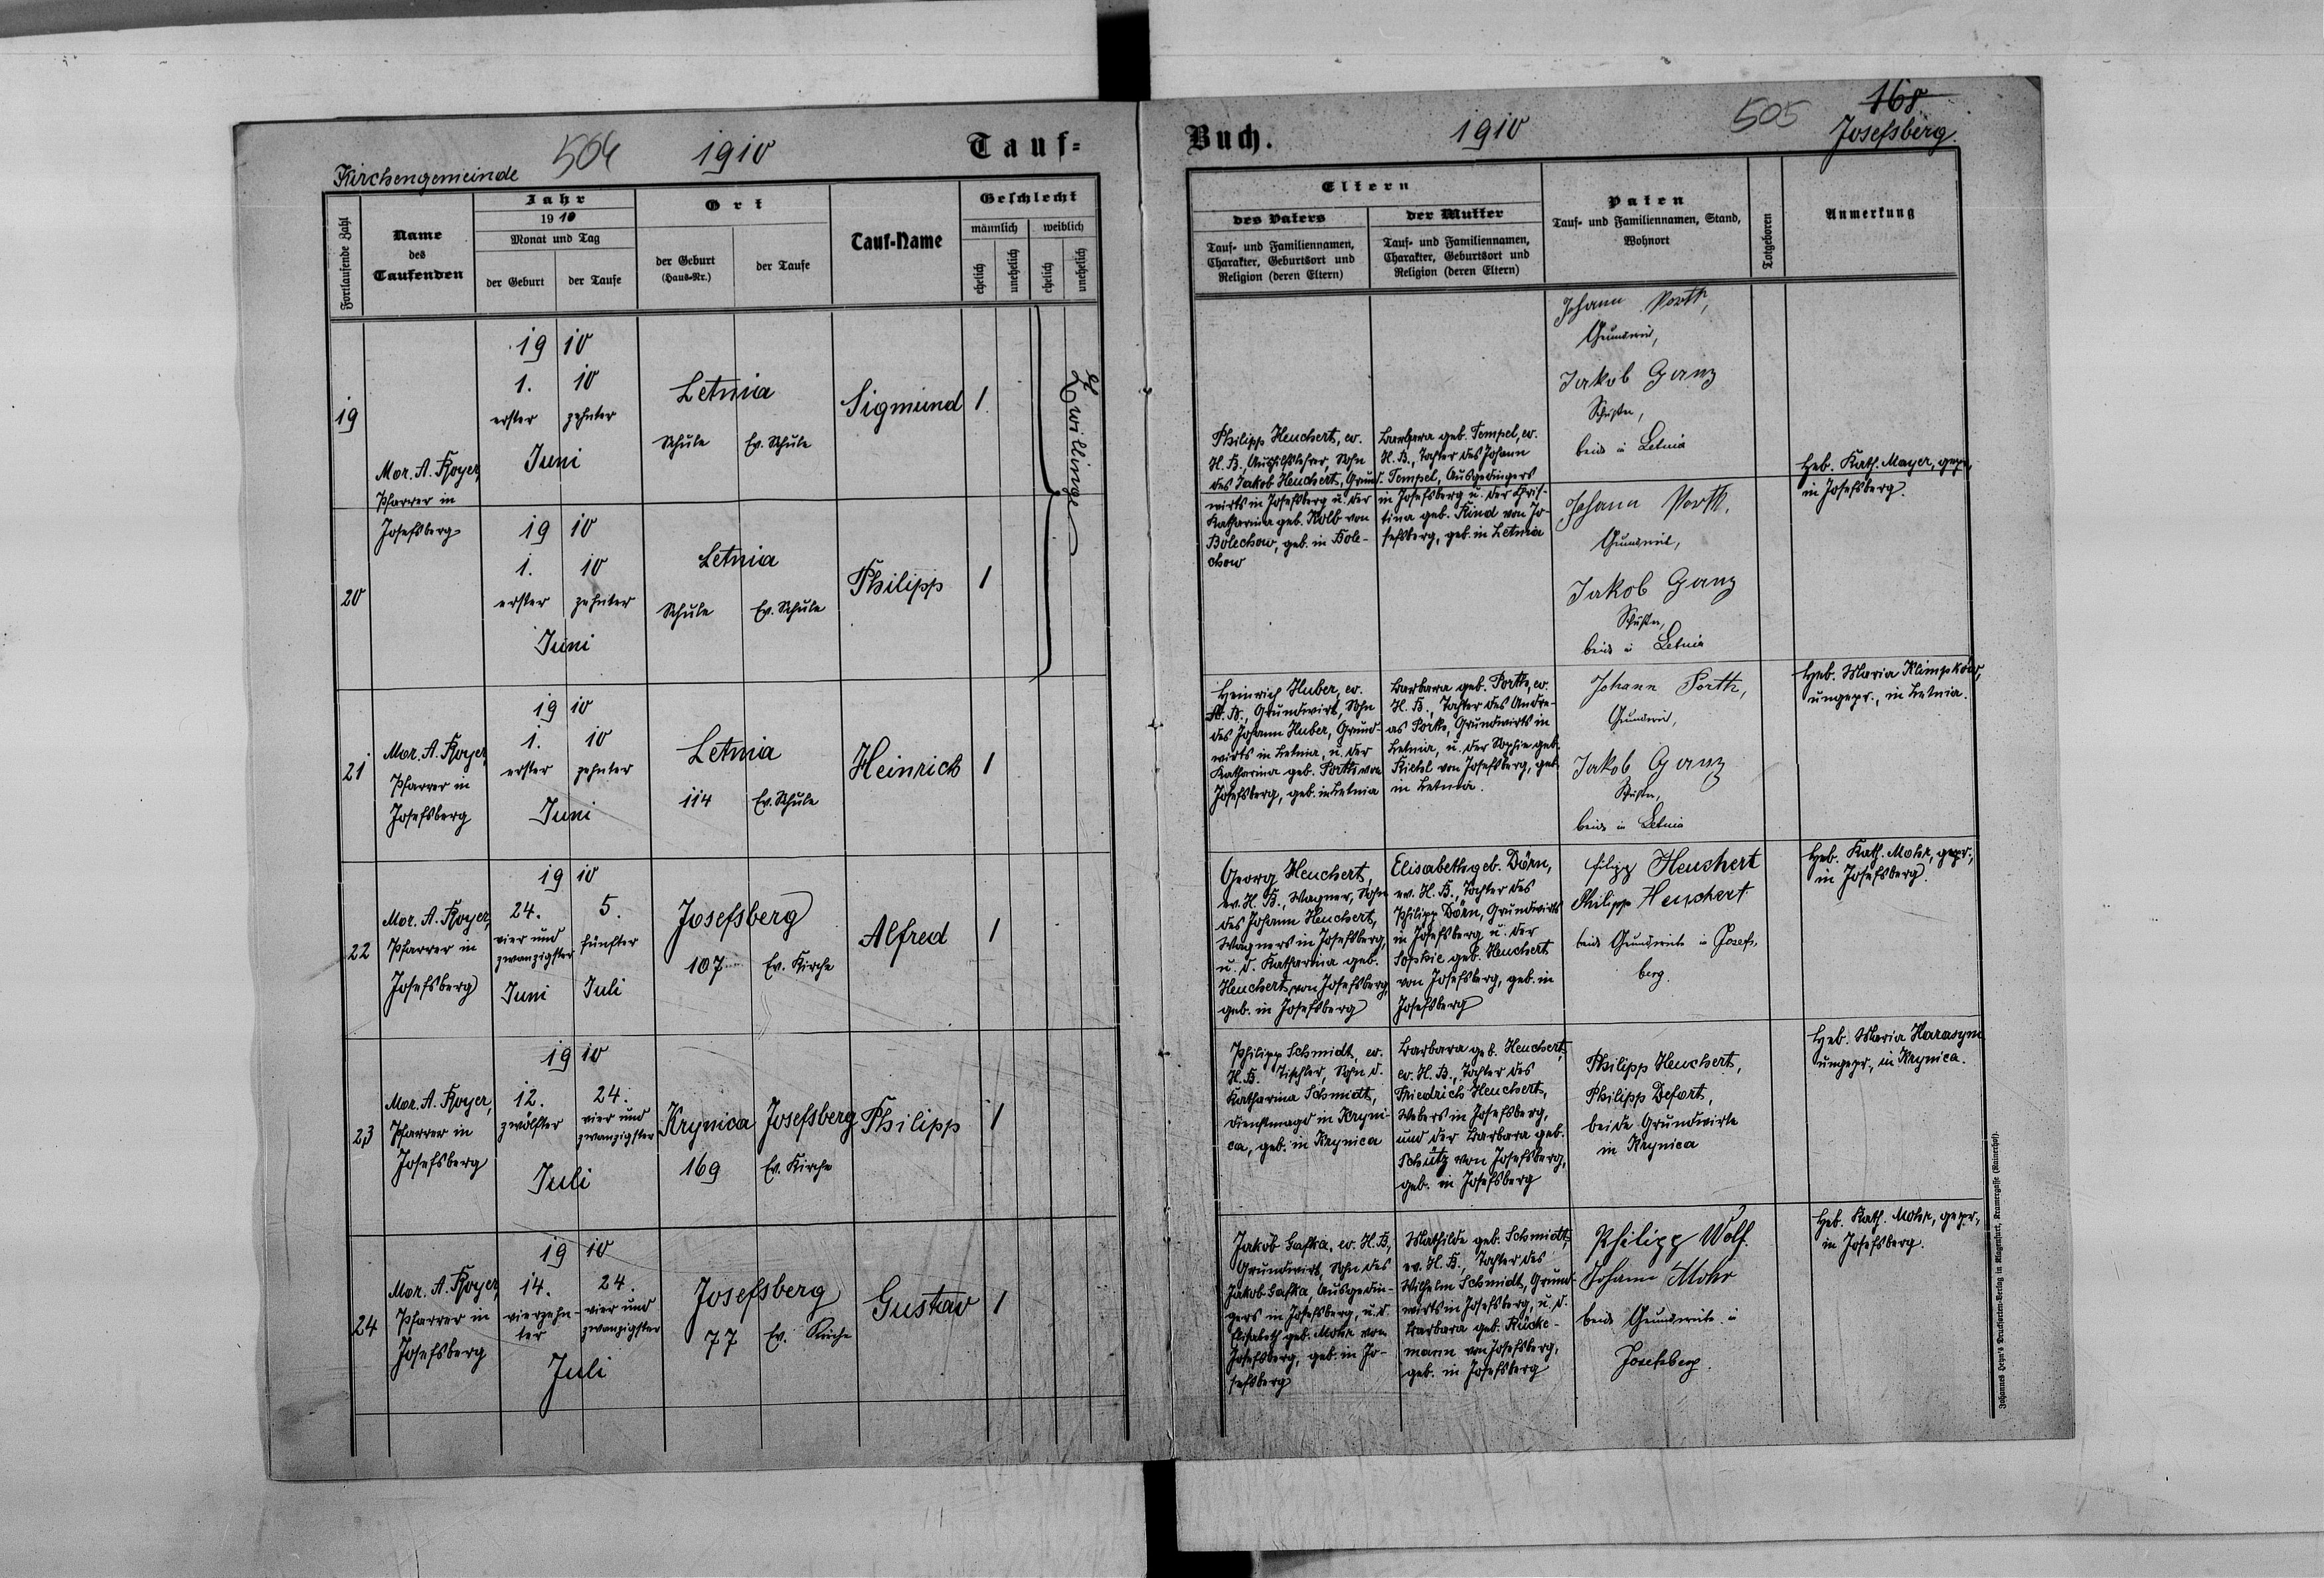 504 1910 Tauf=
Kirchengemeinde
Fortlaufende Zahl
Name
des
Taufenden
Jahr
1910
Monat und Tag
der Geburt
der Taufe
Ort
der Geburt
(Haus-Nr.)
der Taufe
Tauf-Name
Geschlecht
männlich
weiblich
ehelich
unehelich
ehelich
unehelich
19
Mor. A. Royer,
Pfarrer in
Josefsberg
19 10
1. 10
erster zehnter
Juni
Letnia
Schule Ev. Schule
Sigmund
1
Zwillinge
20
19 10
1. 10
erster zehnter
Juni
Letnia
Schule Ev. Schule
Philipp
1
21
Mor. A. Royer,
Pfarrer in
Josefsberg
19 10
1. 10
erster zehnter
Juni
Letnia
114 Ev. Schule
Heinrich
1
22
Mor. A. Royer,
Pfarrer in
Josefsberg
19 10
24. 5.
vier und fünfter
zwanzigster
Juni Juli
Josefsberg
107 Ev. Kirche
Alfred
1
23
Mor. A. Royer,
Pfarrer in
Josefsberg
19 10
12. 24.
zwölfter vier und
zwanzigster
Juli
Krynica Josefsberg
169 Ev. Kirche
Philipp
1
24
Mor. A. Royer,
Pfarrer in
Josefsberg
19 10
14. 24.
vierzehn- vier und
ter zwanzigster
Juli
Josefsberg
77 Ev. Kirche
Gustav
1
Buch. 1910 505 168
Josefsberg.
Eltern
des Vaters
Tauf- und Familiennamen,
Charakter, Geburtsort und
Religion (deren Eltern)
der Mutter
Tauf- und Familiennamen,
Charakter, Geburtsort und
Religion (deren Eltern)
Paten
Tauf- und Familiennamen, Stand,
Wohnort
Totgeboren
Anmerkung
Philipp Heuchert, ev.
H. B., Aushilfslehrer, Sohn
des Jakob Heuchert, Grund-
wirts in Josefsberg u. der
Katharina geb. Kolb von
Bolechow, geb. in Bole-
chow
Barbara geb. Tempel, ev.
H. B., Tochter des Johann
Tempel, Ausgedingers
in Josefsberg u. der Chris-
tina geb. Kind von Jo-
sefsberg, geb. in Letnia
Johann Porth,
Grundwirt,
Jakob Ganz
Schuster,
beide in Letnia
Heb. Kath. Mayer, gepr.,
in Josefsberg.
Johann Porth,
Grundwirt,
Jakob Ganz
Schuster,
beide in Letnia
Heinrich Huber, ev.
H. B., Grundwirt, Sohn
des Johann Huber, Grund-
wirts in Letnia, u. der
Katharina geb. Porth von
Josefsberg, geb. in Letnia
Barbara geb. Porth, ev.
H. B., Tochter des Andre-
as Porth, Grundwirts in
Letnia, u. der Sophie geb.
von Josefsberg, geb.
in Letnia.
Johann Porth,
Grundwirt,
Jakob Ganz
Schuster,
beide in Letnia
Heb. Maria Klimpków,
ungepr., in Letnia.
Georg Heuchert,
ev. H. B., Wagner, Sohn
des Johann Heuchert,
Wagners in Josefsberg,
u. d. Katharina geb.
Heuchert, von Josefsberg,
geb. in Josefsberg
Elisabeth geb. Dörn,
ev. H. B. Tochter des
Philipp Dörn, Grundwirts
in Josefsberg u. der
Sophie geb. Heuchert
von Josefsberg, geb. in
Josefsberg
filipp Heuchert
Philipp Heuchert
beide Grundwirte in Josefs-
berg.
Heb. Kath. Mohr, gepr.,
in Josefsberg.
Philipp Schmidt, ev.
H. B. Tischler, Sohn d.
Katharina Schmidt,
Dienstmagd in Kryni-
ca, geb. in Krynica
Barbara geb. Heuchert,
ev. H. B., Tochter des
Friedrich Heuchert,
Webers in Josefsberg,
und der Barbara geb.
Schütz von Josefsberg,
geb. in Josefsberg
Philipp Heuchert,
Philipp Defort,
beide Grundwirte
in Krynica
Heb. Maria Harasym
ungepr., in Krynica.
Jakob Lafka, ev. H. B.,
Grundwirt, Sohn des
Jakob Lafka, Ausgedin-
gers in Josefsberg, u. d.
Elisabeth geb. Mohr von
Josefsberg, geb. in Jo-
sefsberg
Mathilde geb. Schmidt,
ev. H. B., Tochter des
Wilhelm Schmidt, Grund-
wirts in Josefsberg, u. d.
Barbara geb. Rücke-
mann von Josefsberg,
geb. in Josefsberg
Philipp Wolf.
Johann Mohr
beide Grundwirte in
Josefsberg.
Heb. Kath. Mohr, gepr.,
in Josefsberg.
Johannes Heyn's Drucksorten-Verlag in Klagenfurt, Kramergasse (Rainerhof).